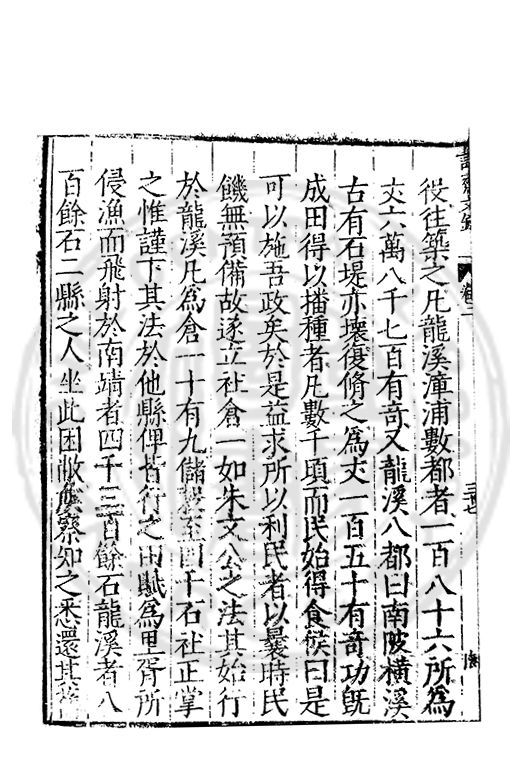 役往築之凡龍溪漳浦數都者一百八十六所爲
丈六萬八千七百有奇又龍溪八都曰南陂橫溪
古有石堤亦壞復脩之爲丈一百五十有奇功旣
成田得以播種者凡數千頃而民始得食侯曰是
可以施吾政矣於是益求所以利民者以曩時民
饑無預備故遂立社倉一如朱文公之法其始行
於龍溪凡爲倉一十有九儲穀至四千石社正掌
之惟謹下其法於他縣俾皆行之田賦爲里胥所
侵漁而飛射於南靖者四千三百餘石龍溪者八
百餘石二縣之人坐此困敝侯察知之悉還其舊